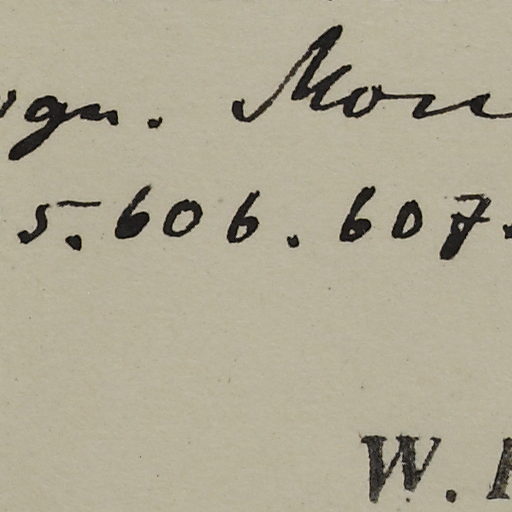 ogn. Mon
5. 606. 607.
W.